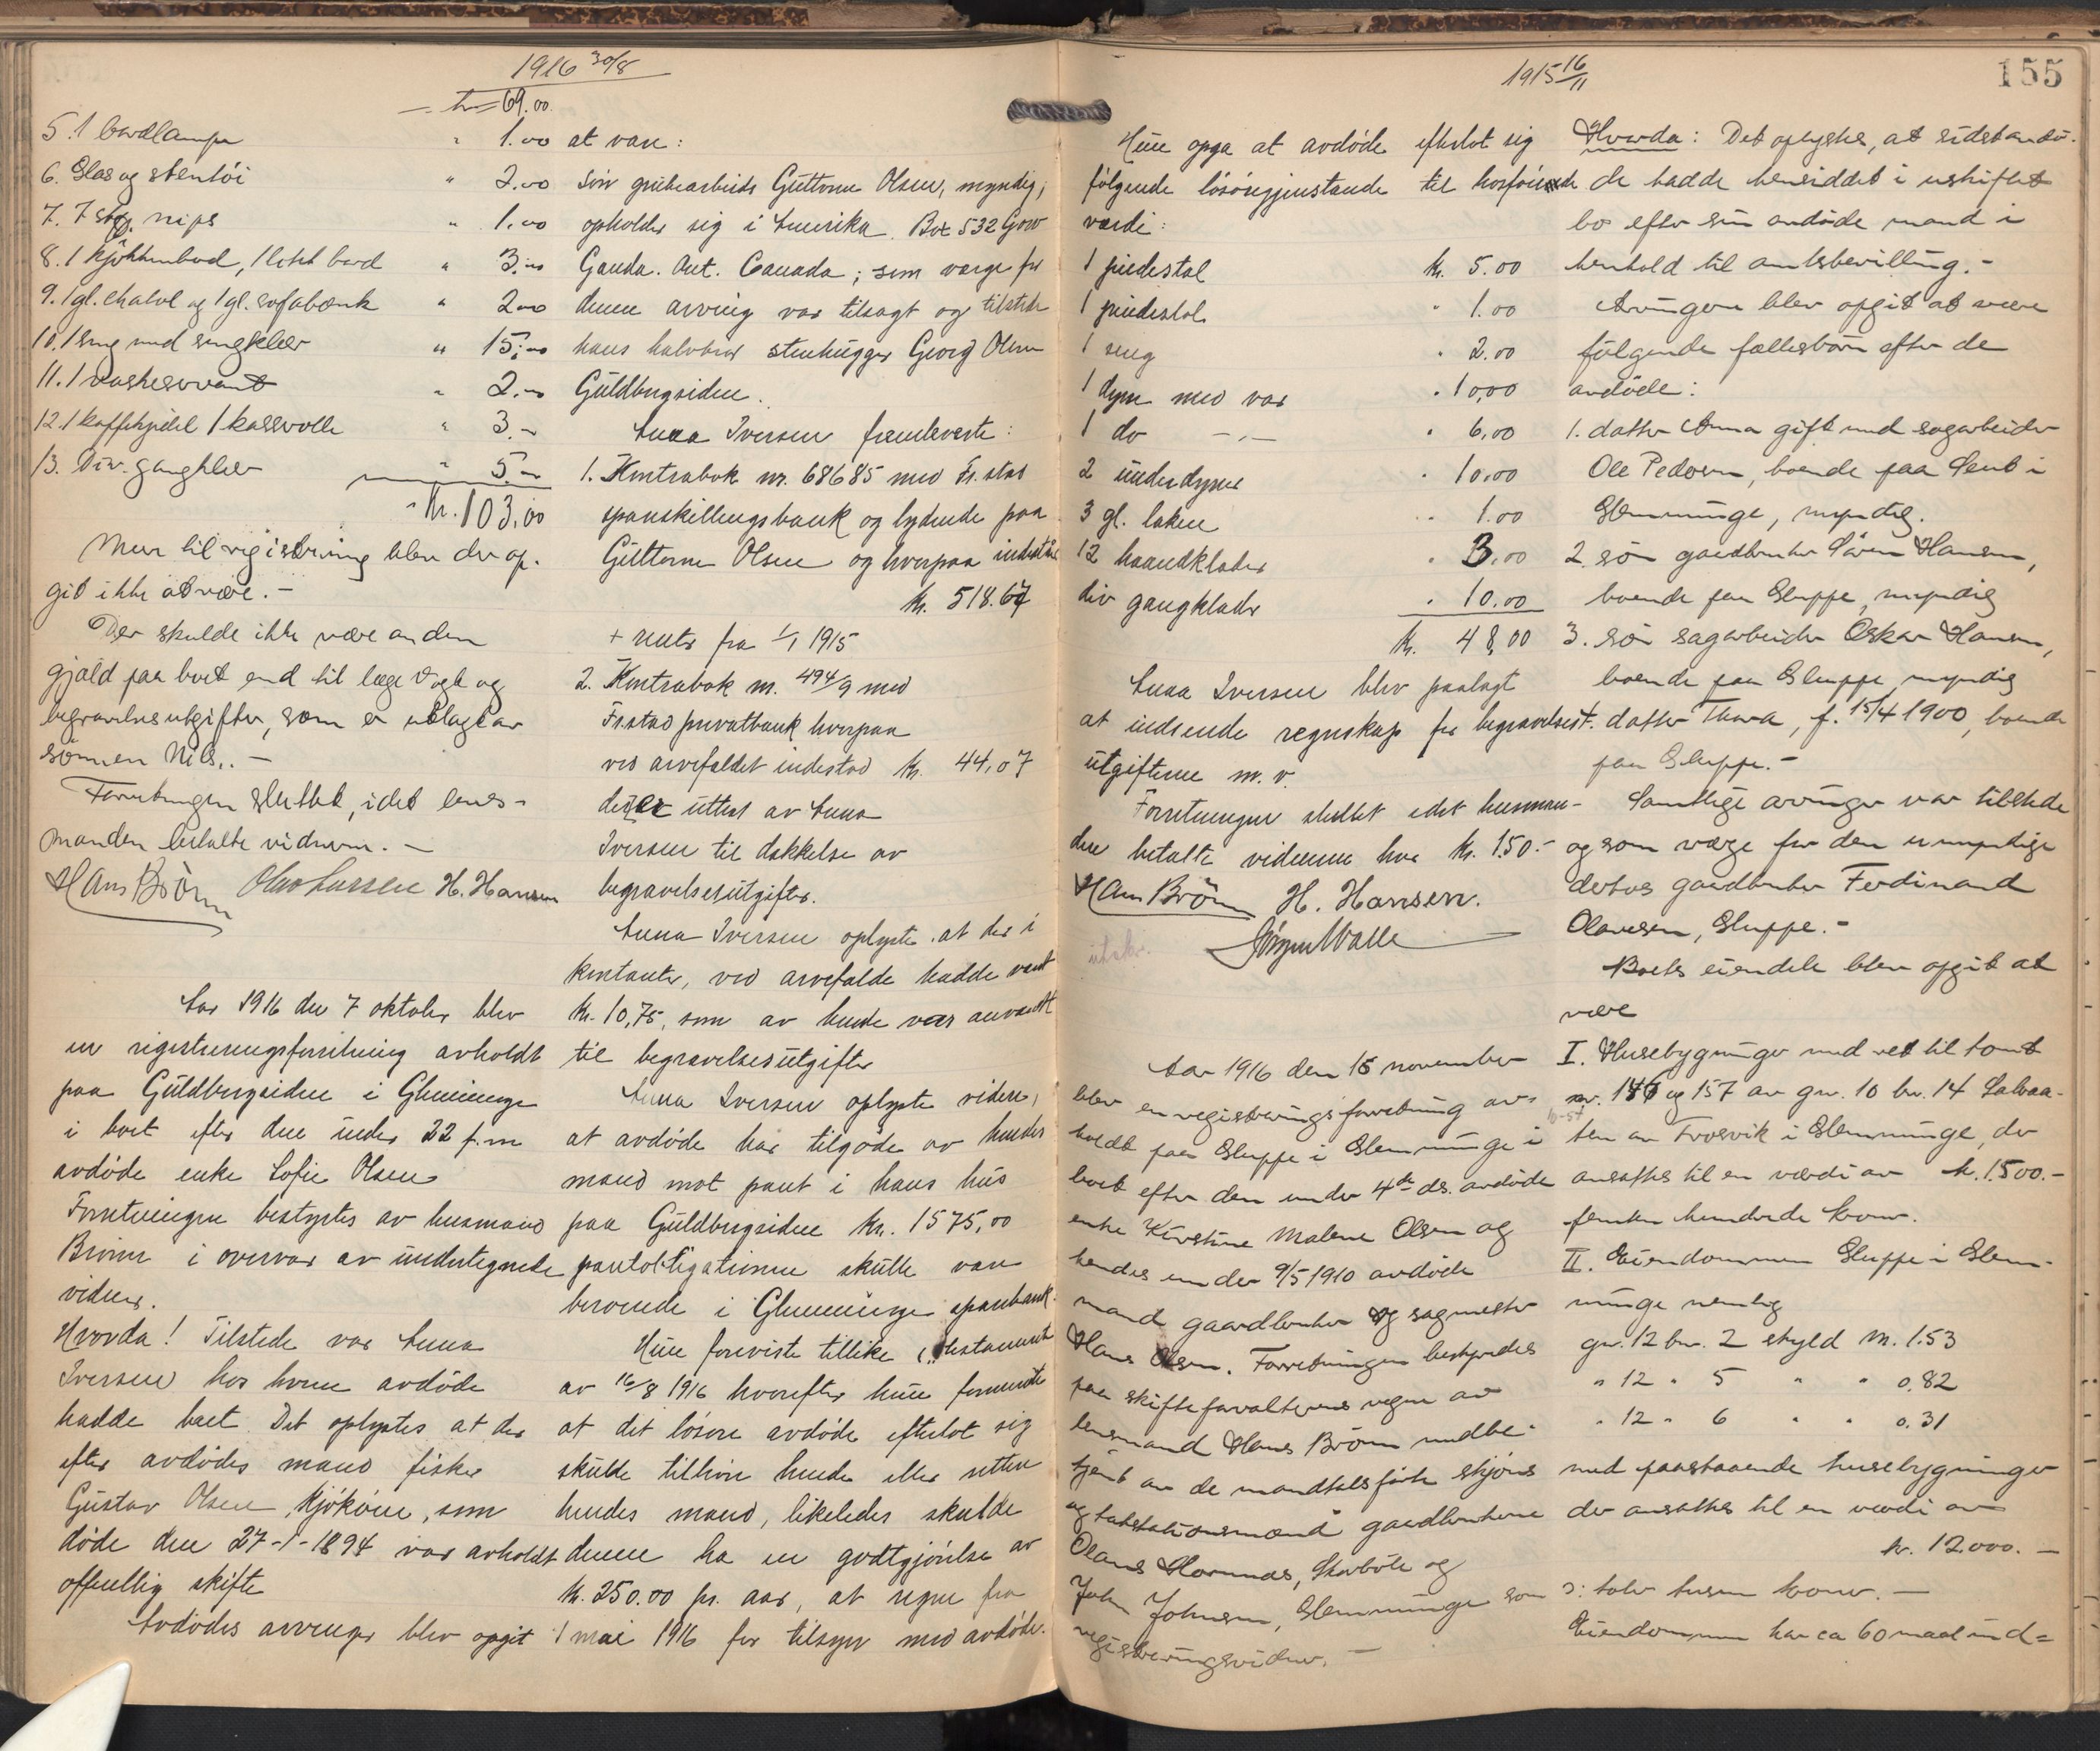 1916 30/8
kr. 69.00
5. 1 bordlampe " 1.00
6. Glas og stentöi " 2.00
7. 7 stkr. nips " 1.00
8. 1 kjökkenbord, 1 litet bord " 3.00
9. 1 gl. chatol og 1 gl. sofabænk " 2.00
10. 1 seng med sengklær " 15.00
11. 1 vaskeservant " 2.00
12. 1 kaffekjedel 1 kasserolle " 3.-
13. Div. gangklær " 5.-
Kr. 103,00
Mere til registrering blev der op-
git ikke at være.-
Der skulde ikke være anden
gjæld paa boet end til læge Vogt og
begravelsesutgifter, som er utlagt av
sönnen Nils. -
Forretningen sluttet, idet lens-
manden betalte vidnerne. -
Hans Brönn Olav Larssen H. Hansen
Aar 1916 den 7 oktober blev
en registreringsforretning avholdt
paa Guldbergsiden i Glemminge
i boet efter den under 22 f.m.
avdöde enke Sofie Olsen
Forretningen bestyrtes av lensmand
Brönn i overvær av undertegnede
vidner.
Hvorda! Tilstede var Anna
Iversen hos hvem avdöde
hadde boet. Det oplystes at der
efter avdödes mand fisker
Gustav Olsen, Kjököen, som
döde den 27-1-1894 var avholdt
offentlig skifte
Avdödes arvinger blev opgit
at være:
Sön grubearbeider Guttorm Olsen, myndig,
opholder sig i Amerika. Box 532 Gow
Ganda. Ont. Canada; som værge for
denne arving var tilsagt og tilstede
hans halvbror stenhugger Georg Olsen
Guldbergsiden.
Anna Iversen fremleverte:
1. Kontrabok nr. 68685 med Fr.stad
sparskillingsbank og lydende paa
Guttorm Olsen og hvorpaa indestaar
kr. 518.67
+ renter fra 1/1 1915
2. Kontrabok nr. 494/9 med
Fr.stad privatbank hvorpaa
ved arvefaldet indestod kr. 44,07
der er uttat av Anna
Iversen til dækkelse av
begravelsesutgifter.
Anna Iversen oplyste at der i
kontanter, ved arvefaldet hadde været
kr. 10,75, som av hende var anvendt
til begravelsesutgifter
Anna Iversen oplyste videre,
at avdöde har tilgode av hendes
mand mot pant i hans hus
paa Guldbergsiden kr. 1575,00
pantobligationen skulle være
beroende i Glemminge sparebank.
Hun foreviste tillike "testament"
av 16/8 1916 hvorefter hun formente
at det lösöre avdöde efterlot sig
skulde tilhöre hende eller retten
hendes mand, likeledes skulde
denne ha en godtgjörelse av
kr. 250.00 pr. aar, at regne fra
1 mai 1916 for tilsyn med avdöde.
1915 16/11
155
Hun opga at avdöde efterlot sig
fölgende lösöregjenstande til hosföiende
værdi:
1 piedestal kr. 5.00
1 piedestal " 1.00
1 seng " 2.00
1 dyne med var " 10,00
1 do -"- " 6,00
2 underdyner " 10.00
3 gl. laken " 1.00
12 haandklæder " 3.00
div gangklæder " 10.00
kr. 48,00
Anna Iversen blev paalagt
at indsende regnskap for begravelses-
utgifterne m.v.
Forretningen sluttet idet lensman-
den betalte vidnerne hver kr. 1.50.-
Hans Brönn H. Hansen.
Jörgen Walle
utskr.
Aar 1916 den 16 november
blev en registreringsforretning av-
holdt paa Gluppe i Glemminge i
boet efter den under 4de ds. avdöde
enke Kirstine Malene Olsen og
hendes under 9/5 1910 avdöde
mand gaardbruker og sagmester
Hans Olsen. Forretningen bestyredes
paa skifteforvalterens vegne av
lensmand Hans Brönn medbe-
tjent av de mandtalsförte skjöns
og takstationsmænd gaardbrukerne
Olaus Hornnæs, Skovböle og
John Johnsen, Glemminge som
registreringsvidner. -
Hvorda: Det oplystes, at sidstavdö-
de hadde hensiddet i uskiftet
bo efter sin avdöde mand i
henhold til amtsbevilling.-
Arvingene blev opgit at være
fölgende fællesbörn efter de
avdöde:
1. datter Anna gift med sagarbeider
Ole Pedersen, boende paa Lunt i
Glemminge, myndig.
2. sön gaardbruker Sören Hansen,
boende paa Gluppe, myndig
3. sön sagarbeider Oskar Hansen,
boende paa Gluppe myndig
4. datter Thora, f. 15/4 1900, boende
paa Gluppe.-
Samtlige arvinger var tilstede
og som værge for den umyndige
dettes gaardbruker Ferdinand
Olavesen, Gluppe.-
Boets eiendele blev opgit at
være
I. Husebygninger med ret til tomt
nr. 146 og 157 av gnr. 10 br. 14 Labraa-
ten av Trosvik i Glemminge, der
ansattes til en værdi av kr. 1500.-
femten hundrede kroner.
II. Eiendommen Gluppe i Glem-
minge nemlig
gnr. 12 bnr. 2 skyld M. 1.53
" 12 " 5 " " 0.82
" 12 " 6 " " 0.31
med paastaaende husebygninger
der ansattes til en værdi av
kr. 12000. -
ɔ: tolv tusen kroner. -
Eiendommen har ca 60 maal ind=